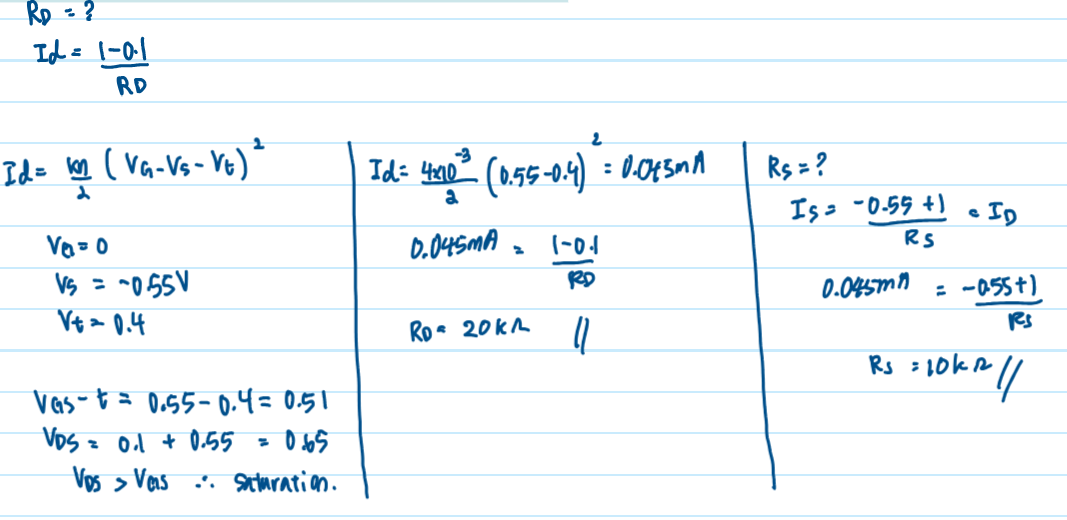 RD = ?
Id = (1-0.1)/RD
Id = kn/2 (VG-VS-Vt)²
VG = 0
VS = -0.55V
Vt = 0.4
VGS-t = 0.55-0.4 = 0.51
VDS = 0.1 + 0.55 = 0.65
VDS > VGS ∴ Saturation.
Id = 4x10⁻³/2 (0.55-0.4)² = 0.045mA
0.045mA = (1-0.1)/RD
RD = 20kΩ //
RS = ?
IS = (-0.55+1)/RS = ID
0.045mA = (-0.55+1)/RS
RS = 10kΩ //